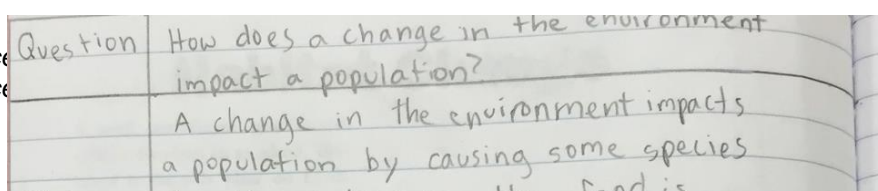 Question How does a change in the environment
impact a population?
A change in the environment impacts
a population by causing some species